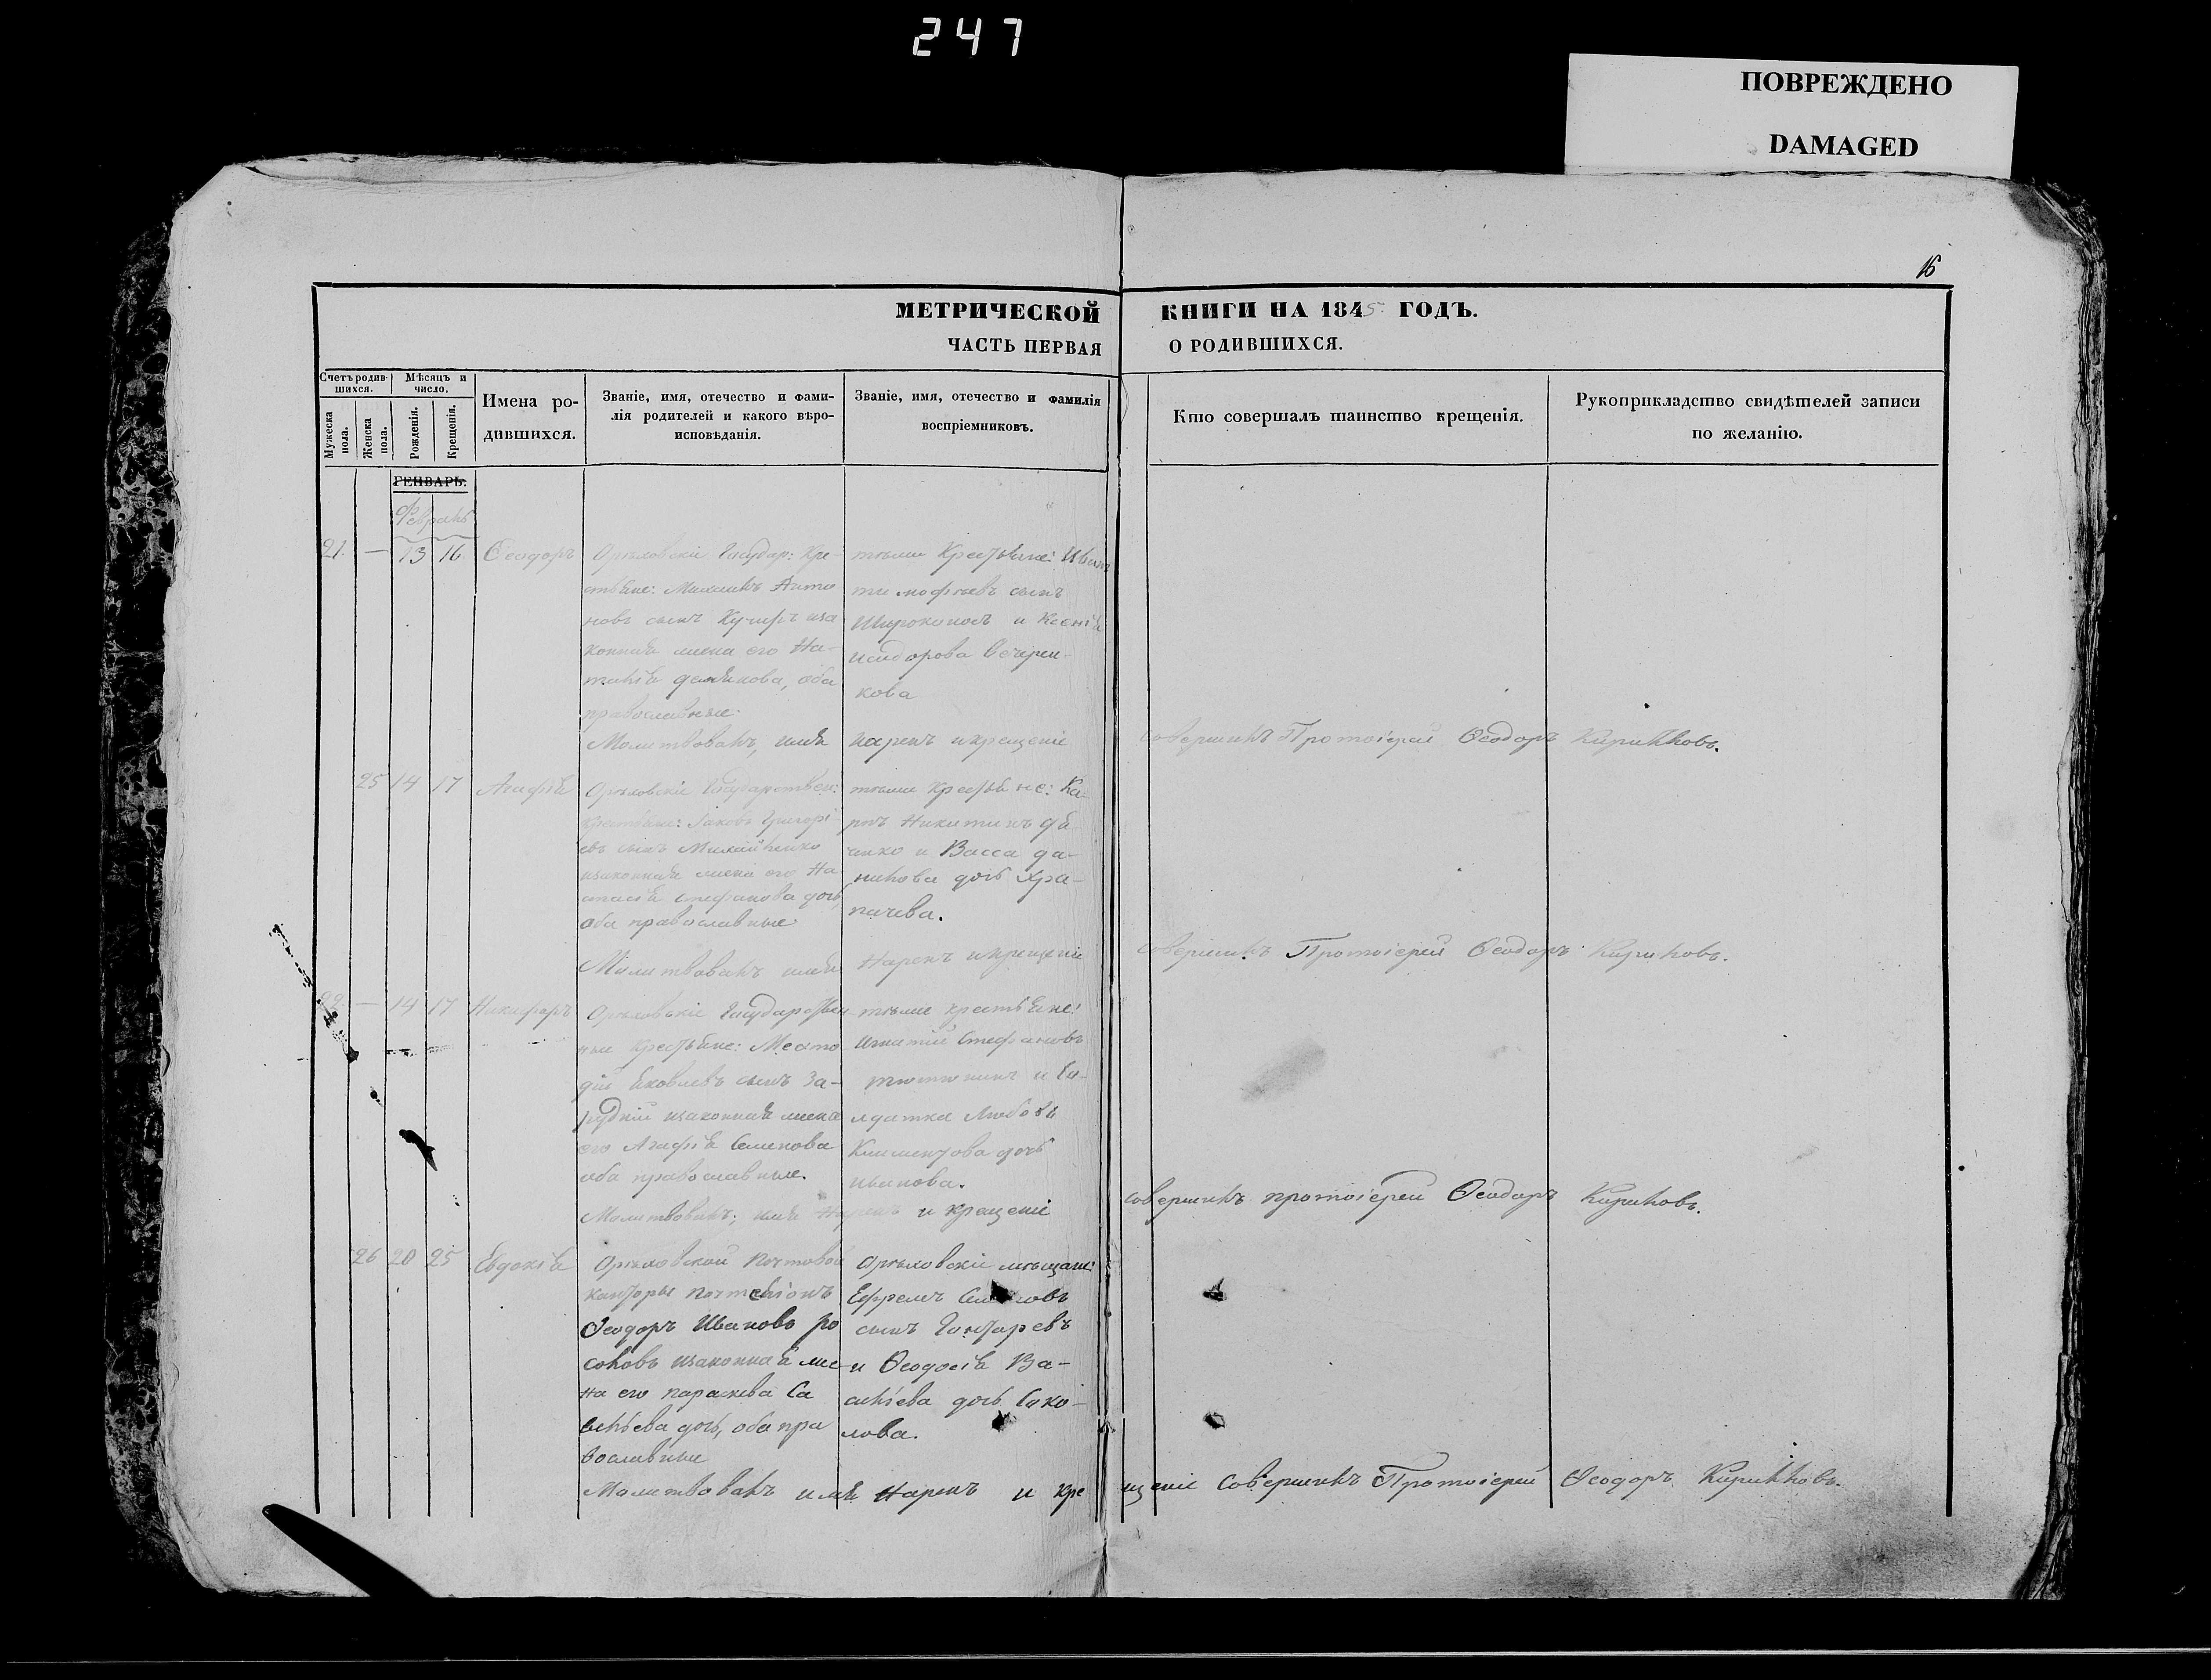 247
ПОВРЕЖДЕНО
DAMAGED
16
МЕТРИЧЕСКОЙ КНИГИ НА 1845 ГОДЪ.
ЧАСТЬ ПЕРВАЯ О РОДИВШИХСЯ.
Счетъ родившихся.
Мѣсяцъ и число.
Мужеска пола.
Женска пола.
Рожденія.
Крещенія.
Имена родившихся.
Званіе, имя, отечество и фамилія родителей и какого вѣроисповѣданія.
Званіе, имя, отечество и фамилія воспріемниковъ.
Кто совершалъ таинство крещенія.
Рукоприкладство свидѣтелей записи по желанію.
ГЕНВАРЬ.
Февраль
21. — 13 16 Ѳеодоръ
Орѣховскіе Государ: Кре-
стьяне: Михаилъ Анто
новъ сынъ
конная жена его На-
талія, оба
православные.
тѣже Крестьяне: Иванъ
тимофѣевъ сынъ
Широконосъ и Ксенія
исидорова
кова
Молитвовалъ, имя нарекъ и крещеніе совершилъ Протоіерей Ѳеодоръ Кириловъ.
25 14 17 Агафія
Орѣховскіе Государствен:
Крестьяне: Іаковъ Григорі-
евъ сынъ Михайленко
изаконная жена его На
стасія стефанова дочь,
оба православные
тѣже Крестьяне: Ка-
рпъ Никитинъ дя
ченко и Васса да-
нилова дочь Хра-
пачева.
Молитвовалъ имя Нарекъ и крещеніе совершилъ Протоіерей Ѳеодоръ Кириловъ.
22 — 14 17 Никифоръ
Орѣховскіе Государствен
ные Крестьяне: Меѳо
дій Яковлевъ сынъ За-
рудній изаконная жена
его Агафія Семенова
оба православные.
тѣже крестьяне:
Игнатій Стефановъ
и Со-
лдатка Любовь
Климентова дочь
иванова.
Молитвовалъ, имя Нарекъ и крещеніе совершилъ протоіерей Ѳеодоръ Кириловъ.
26 20 25 Евдокія
Орѣховской Почтовой
конторы почталіонъ
Ѳеодоръ Ивановъ
изаконная же
на его параскева Са
вельева дочь, оба пра
вославные
Орѣховскіе мѣщане:
Ефремъ
сынъ Гончаревъ
и Ѳеодосія Ва-
силіева дочь Соко-
лова.
Молитвовалъ имя Нарекъ и крещеніе Совершилъ Протоіерей Ѳеодоръ Кириловъ.